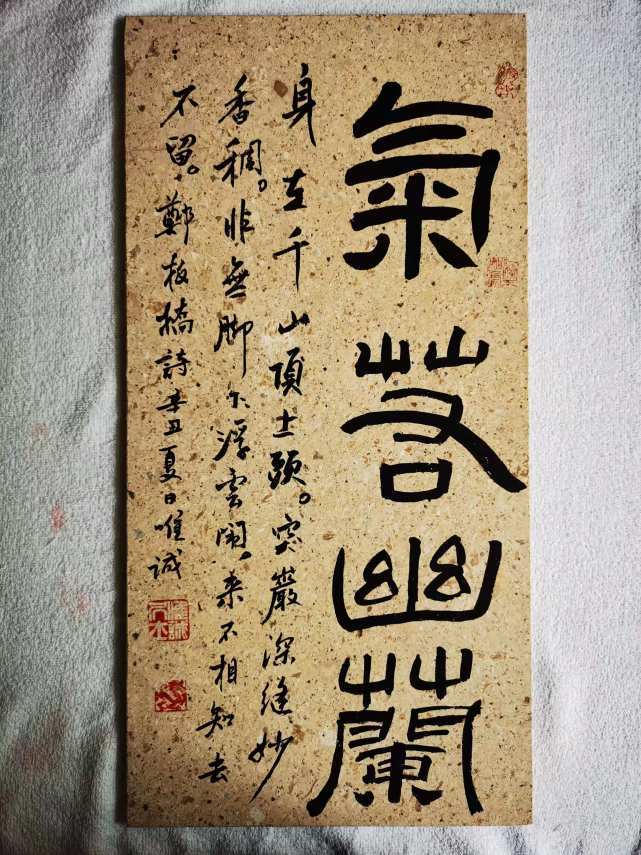 氣若幽蘭
身在千山頂上頭。突巖深縫妙
香稠。非無脚下浮雲鬧、来不相知去
不留。鄭板橋詩辛丑夏日唯誠